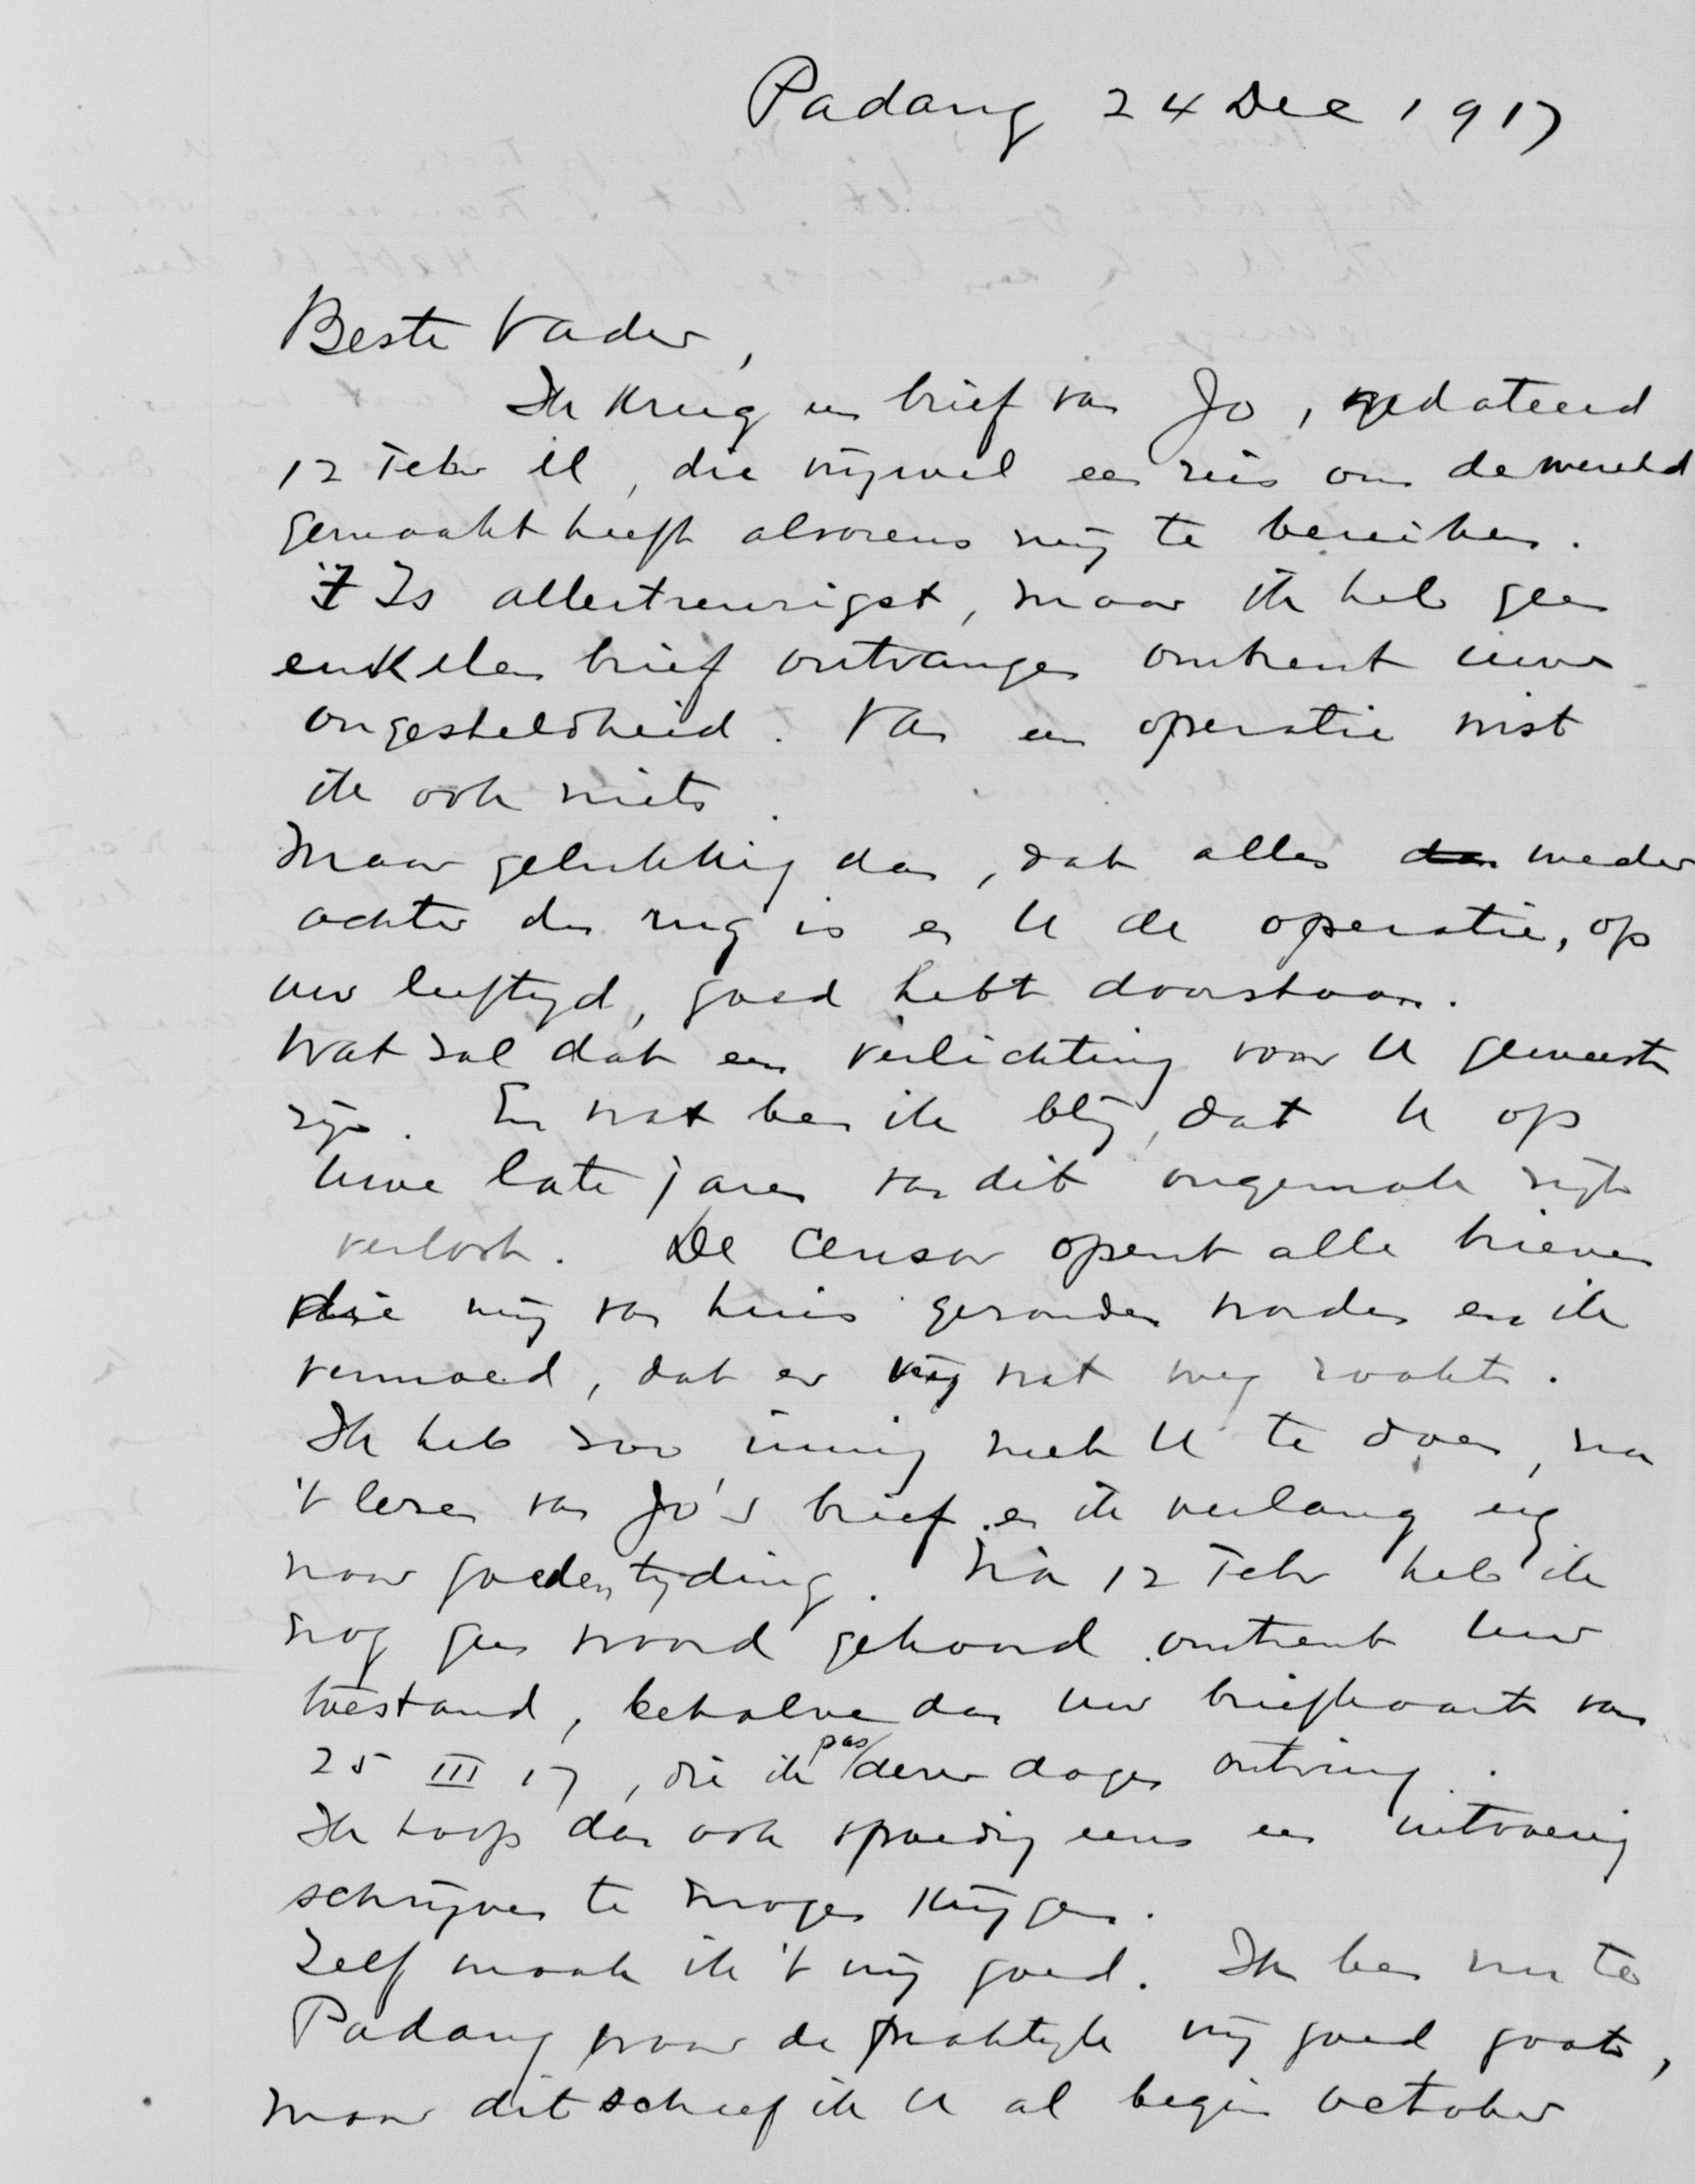 Padang 24 Dec 1917
Beste Vader,
Ik kreeg een brief van Jo, gedateerd
12 Febr ll, die vrijwel een reis om de wereld
gemaakt heeft alvorens mij te bereiken.
't Is allertreurigst, maar ik heb geen
enkelen brief ontvangen omtrent uwe
ongesteldheid. Van een operatie wist
ik ook niets.
Maar gelukkig dan, dat alles weder
achter den rug is en U de operatie, op
uw leeftijd, goed hebt doorstaan.
Wat zal dat een verlichting voor U geweest
zijn. En wat ben ik blij, dat U op
uwe late jaren van dit ongemak zijt
verlost. De Censor opent alle brieven
die mij van huis gezonden worden en ik
vermoed, dat er wat weg raakt.
Ik heb zoo innig met U te doen, na
't lezen van Jo's brief en ik verlang erg
naar goede tijding. Na 12 Febr heb ik
nog geen woord gehoord omtrent uw
toestand, behalve dan uw briefkaart van
25 III 17, die ik pas dezer dagen ontving.
Ik hoop dan ook spoedig eens een uitvoerig
schrijven te mogen krijgen.
Zelf maak ik 't vrij goed. Ik ben nu te
Padang waar de praktijk vrij goed gaat,
maar dit schreef ik U al begin october